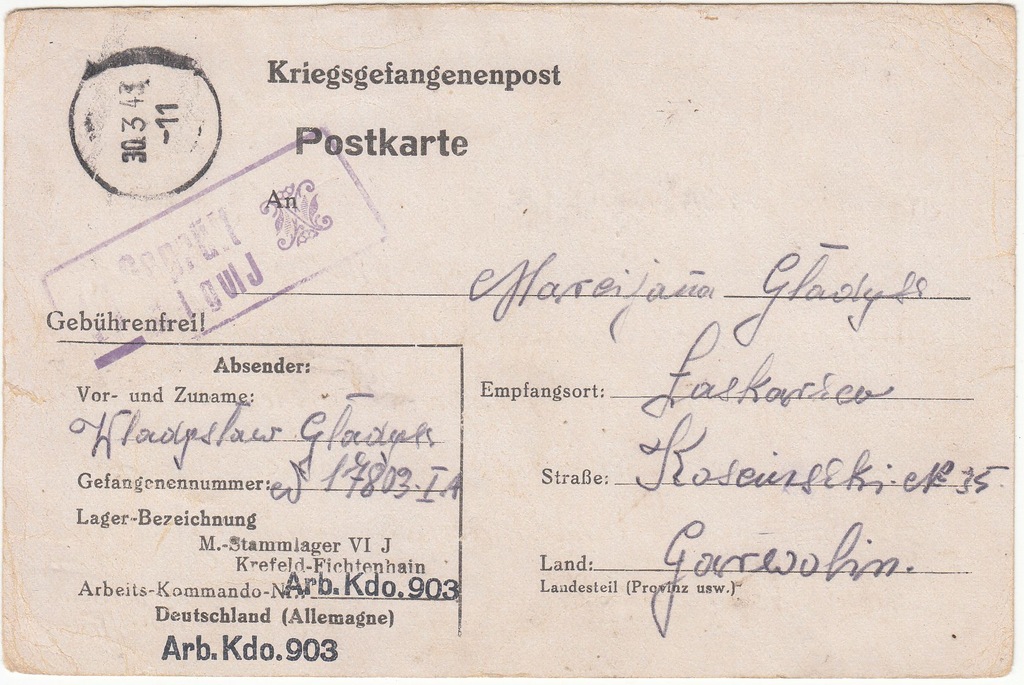 Kriegsgefangenenpost
30.3.43-11
Postkarte
An
Geprüft
Marcijana Gładysz
Gebührenfrei!
Absender:
Vor- und Zuname:
Władysław Gładysz
Gefangenennummer: № 17803. I.A
Lager-Bezeichnung
M.-Stammlager VI J
Krefeld-Fichtenhain
Arbeits-Kommando-Nr. Arb. Kdo. 903
Deutschland (Allemagne)
Arb. Kdo. 903
Empfangsort: Łaskarzew
Straße: № 35
Land: Garwolin.
Landesteil (Provinz usw.)